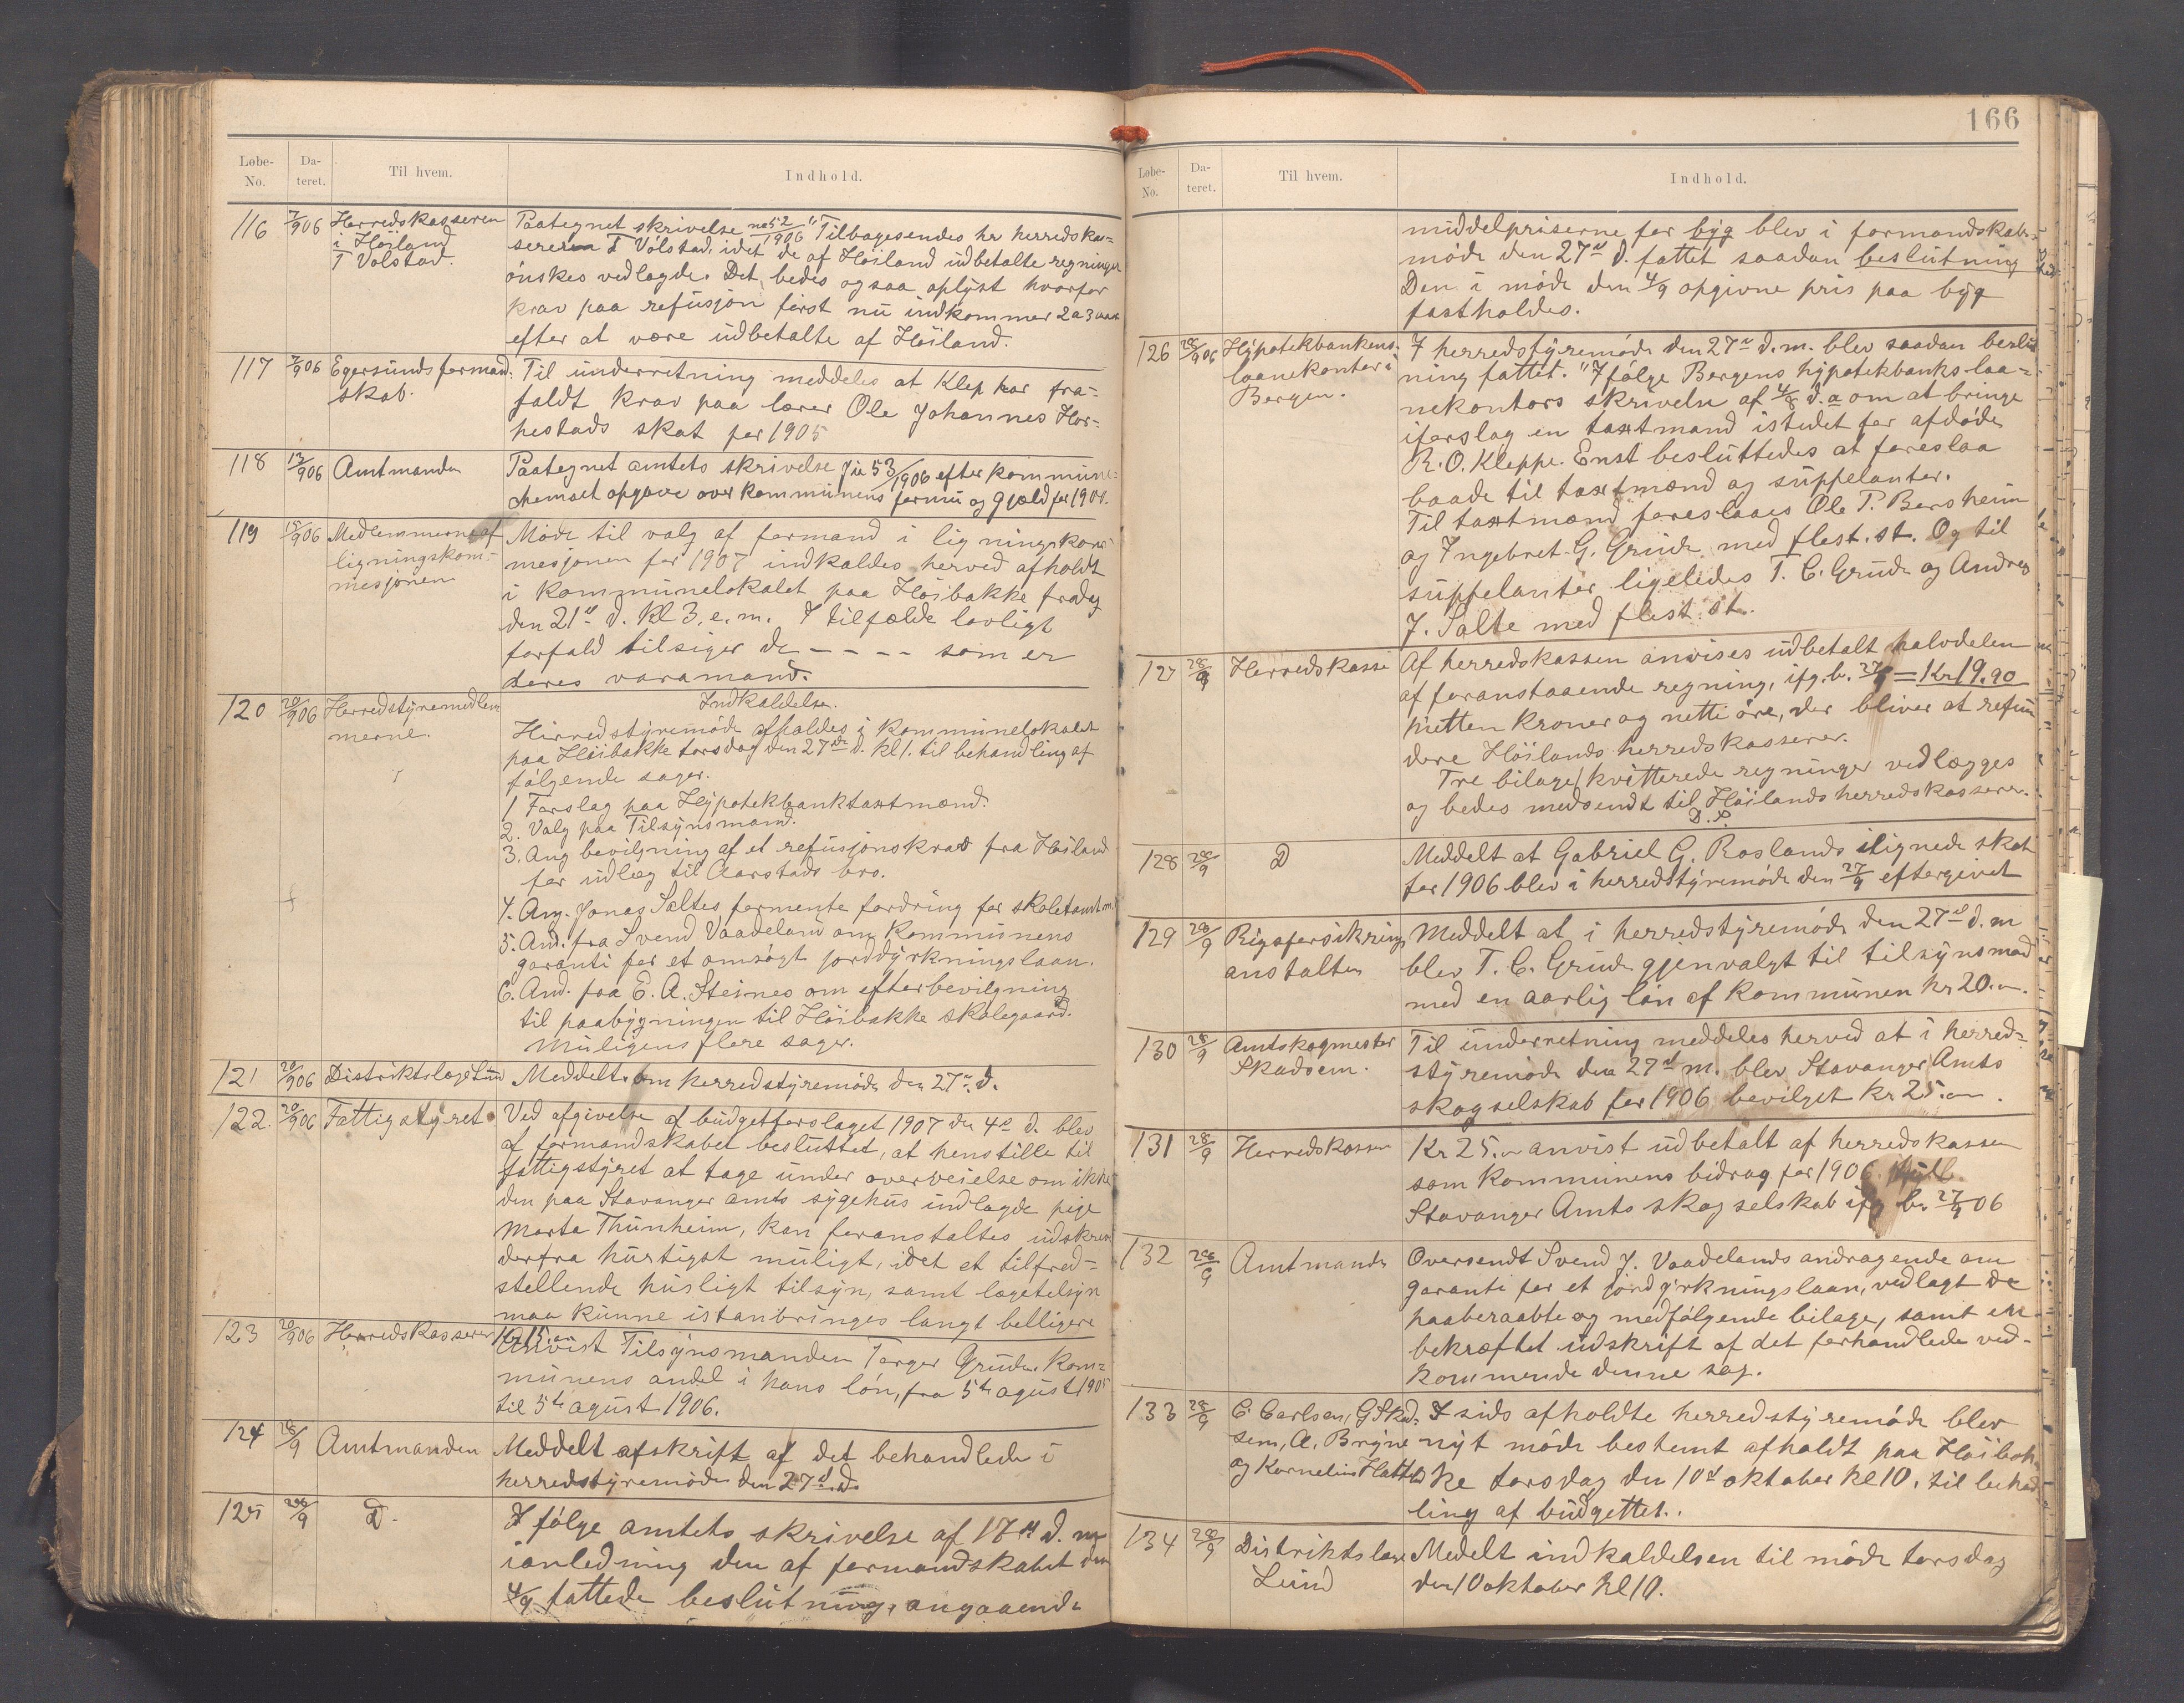 Løbe-No. Da-teret. Til hvem. Indhold.
116 7/9 06 Herredskasseren i Høiland T Volstad.
Paategnet skrivelse no 52/1906 "Tilbagesendes hr herredskas=
sereren T Volstad, idet de af Høiland udbetalte regninger
ønskes vedlagde. Det bedes ogsaa oplyst hvorfor
krav paa refusjon først nu indkommer 2 a 3 aar
efter at være udbetalte af Høiland.
117 7/9 06 Egersunds formandskab.
Til underretning meddeles at Klep har fra=
faldt krav paa lærer Ole Johannes Hor=
pestads skat for 1905
118 13/9 06 Amtmanden
Paategnet amtets skrivelse Jn 53/1906 efter kommune=
skemaet opgave over kommunens formu og gjæld for 190
119 18/9 06 Medlemmerne af ligningskom=mesjonen
Møde til valg af formand i ligningskom
mesjonen for 1907 indkaldes herved afholdt
i kommunelokalet paa Høibakke fredag
den 21de d. kl 3. e. m. I tilfælde lovligt
forfald tilsiger de - - - - som er
deres varamand.
120 20/9 06 Herredstyremedlemmerne.
Indkaldelse.
Herredstyremøde afholdes i kommunelokalet
paa Høibakke torsdag den 27de d. kl 1. til behandling af
følgende sager.
1 Forslag paa Hypotekbanktaxtmænd.
2. Valg paa Tilsynsmand.
3. Ang bevilgning af et refusjonskrav fra Høiland
for udlæg til Aarstads bro.
4. Ang. Jonas Saltes formente fordring for skoletomt
5. And. fra Svend Vaadeland om kommunens
garanti for et omsøgt jorddyrkningslaan.
6. And. fra E. A. Steines om efterbevilgning
til paabygningen til Høibakke skolegaard.
Muligens flere sager.
121 20/9 06 Distriktslæge Lund
Meddelt om herredstyremøde den 27de d.
122. 20/9 06 Fattigstyret
Ved afgivelse af budgetforslaget 1907 den 4de d. blev
af formandskabet besluttet, at henstille til
fattigstyret at tage under overveielse om ikke
den paa Stavanger amts sygehus indlagde pige
Marta Thunheim, kan foranstaltes udskreve
derfra hurtigst muligt, idet et tilfred=
stellende husligt tilsyn, samt lægetilsyn
maa kunne istanbringes langt belligere
123 20/9 06 Herredskasserer
Kr 15.
Anvist Tilsynsmanden Torger Grude, kom=
munens andel i hans løn, fra 5te agust 1905
til 5te agust 1906.
124 28/9 Amtmanden
Meddelt afskrift af det behandlede i
herredstyremøde den 27de d.
125 28/9 D.
I følge amtets skrivelse af 17de d. m
ianledning den af formandskabet den
4/9 fattede beslutning, angaaende
166
Løbe-No. Da-teret. Til hvem. Indhold.
middelpriserne for byg blev i formandskabs=
møde den 27de d. fattet saadan beslutning
Den i møde den 4/9 opgivne pris paa byg
fastholdes.
126 28/9 06 Hypotekbankens laanekontor i Bergen.
I herredstyremøde den 27de d.m. blev saadan beslut
ning fattet. "Ifølge Bergens hypotekbanks laa=
nekontors skrivelse af 4/8 d.a om at bringe
iforslag en taxtmand istedet for afdøde
R. O. Kleppe. Enst besluttedes at foreslaa
baade til taxtmænd og suppelanter.
Til taxtmænd foreslaaes Ole P. Borsheim
og Ingebret G. Grude med flest. st. Og til
suppelanter ligeledes T. C. Grude og Andreas
J. Salte med flest st.
127 28/9 Herredskasse
Af herredskassen anvises udbetalt halvdelen
af foranstaaende regning, ifg. b. 27/9 = Kr 19.90
nitten kroner og nitti øre, der bliver at refun
dere Høilands herredskasserer.
Tre bilage/kvitterede regninger vedlægges
og bedes medsendt til Høilands herredskasserer.
D. S.
128 28/9 D
Meddelt at Gabriel G. Roslands ilignede skat
for 1906 blev i herredstyremøde den 27/9 eftergivet
129 28/9 Rigsforsikrings anstalten
Meddelt at i herredstyremøde den 27de d. m
blev T. C. Grude gjenvalgt til tilsynsmad
med en aarlig løn af kommunen kr 20.
130 28/9 Amtskogmester Skadsem.
Til underretning meddeles herved at i herred=
styremøde den 27de m. blev Stavanger Amts
skogselskab for 1906 bevilget kr 25.
131 28/9 Herredskassen
Kr 25. anvist udbetalt af herredskassen
som kommunens bidrag for 1906
Stavanger Amts skogselskab ifg b. 27/9 06
132 28/9 Amtmanden
Oversendt Svend J. Vaadelands andragende om
garanti for et jordyrkningslaan, vedlagt de
paaberaabte og medfølgende bilage, samt en
bekræftet udskrift af det forhandlede ved=
kommende denne sag.
133 28/9 C. Carlsen, G Skad=sem, A. Bryne og Kornelius Hatteb
I sids afholdte herredstyremøde blev
nyt møde bestemt afholdt paa Høibak
ke torsdag den 10de oktober kl 10. til behad
ling af budgettet.
134 28/9 Distriktslæge Lund
Medelt indkaldelsen til møde torsdag
den 10 oktober kl 10.